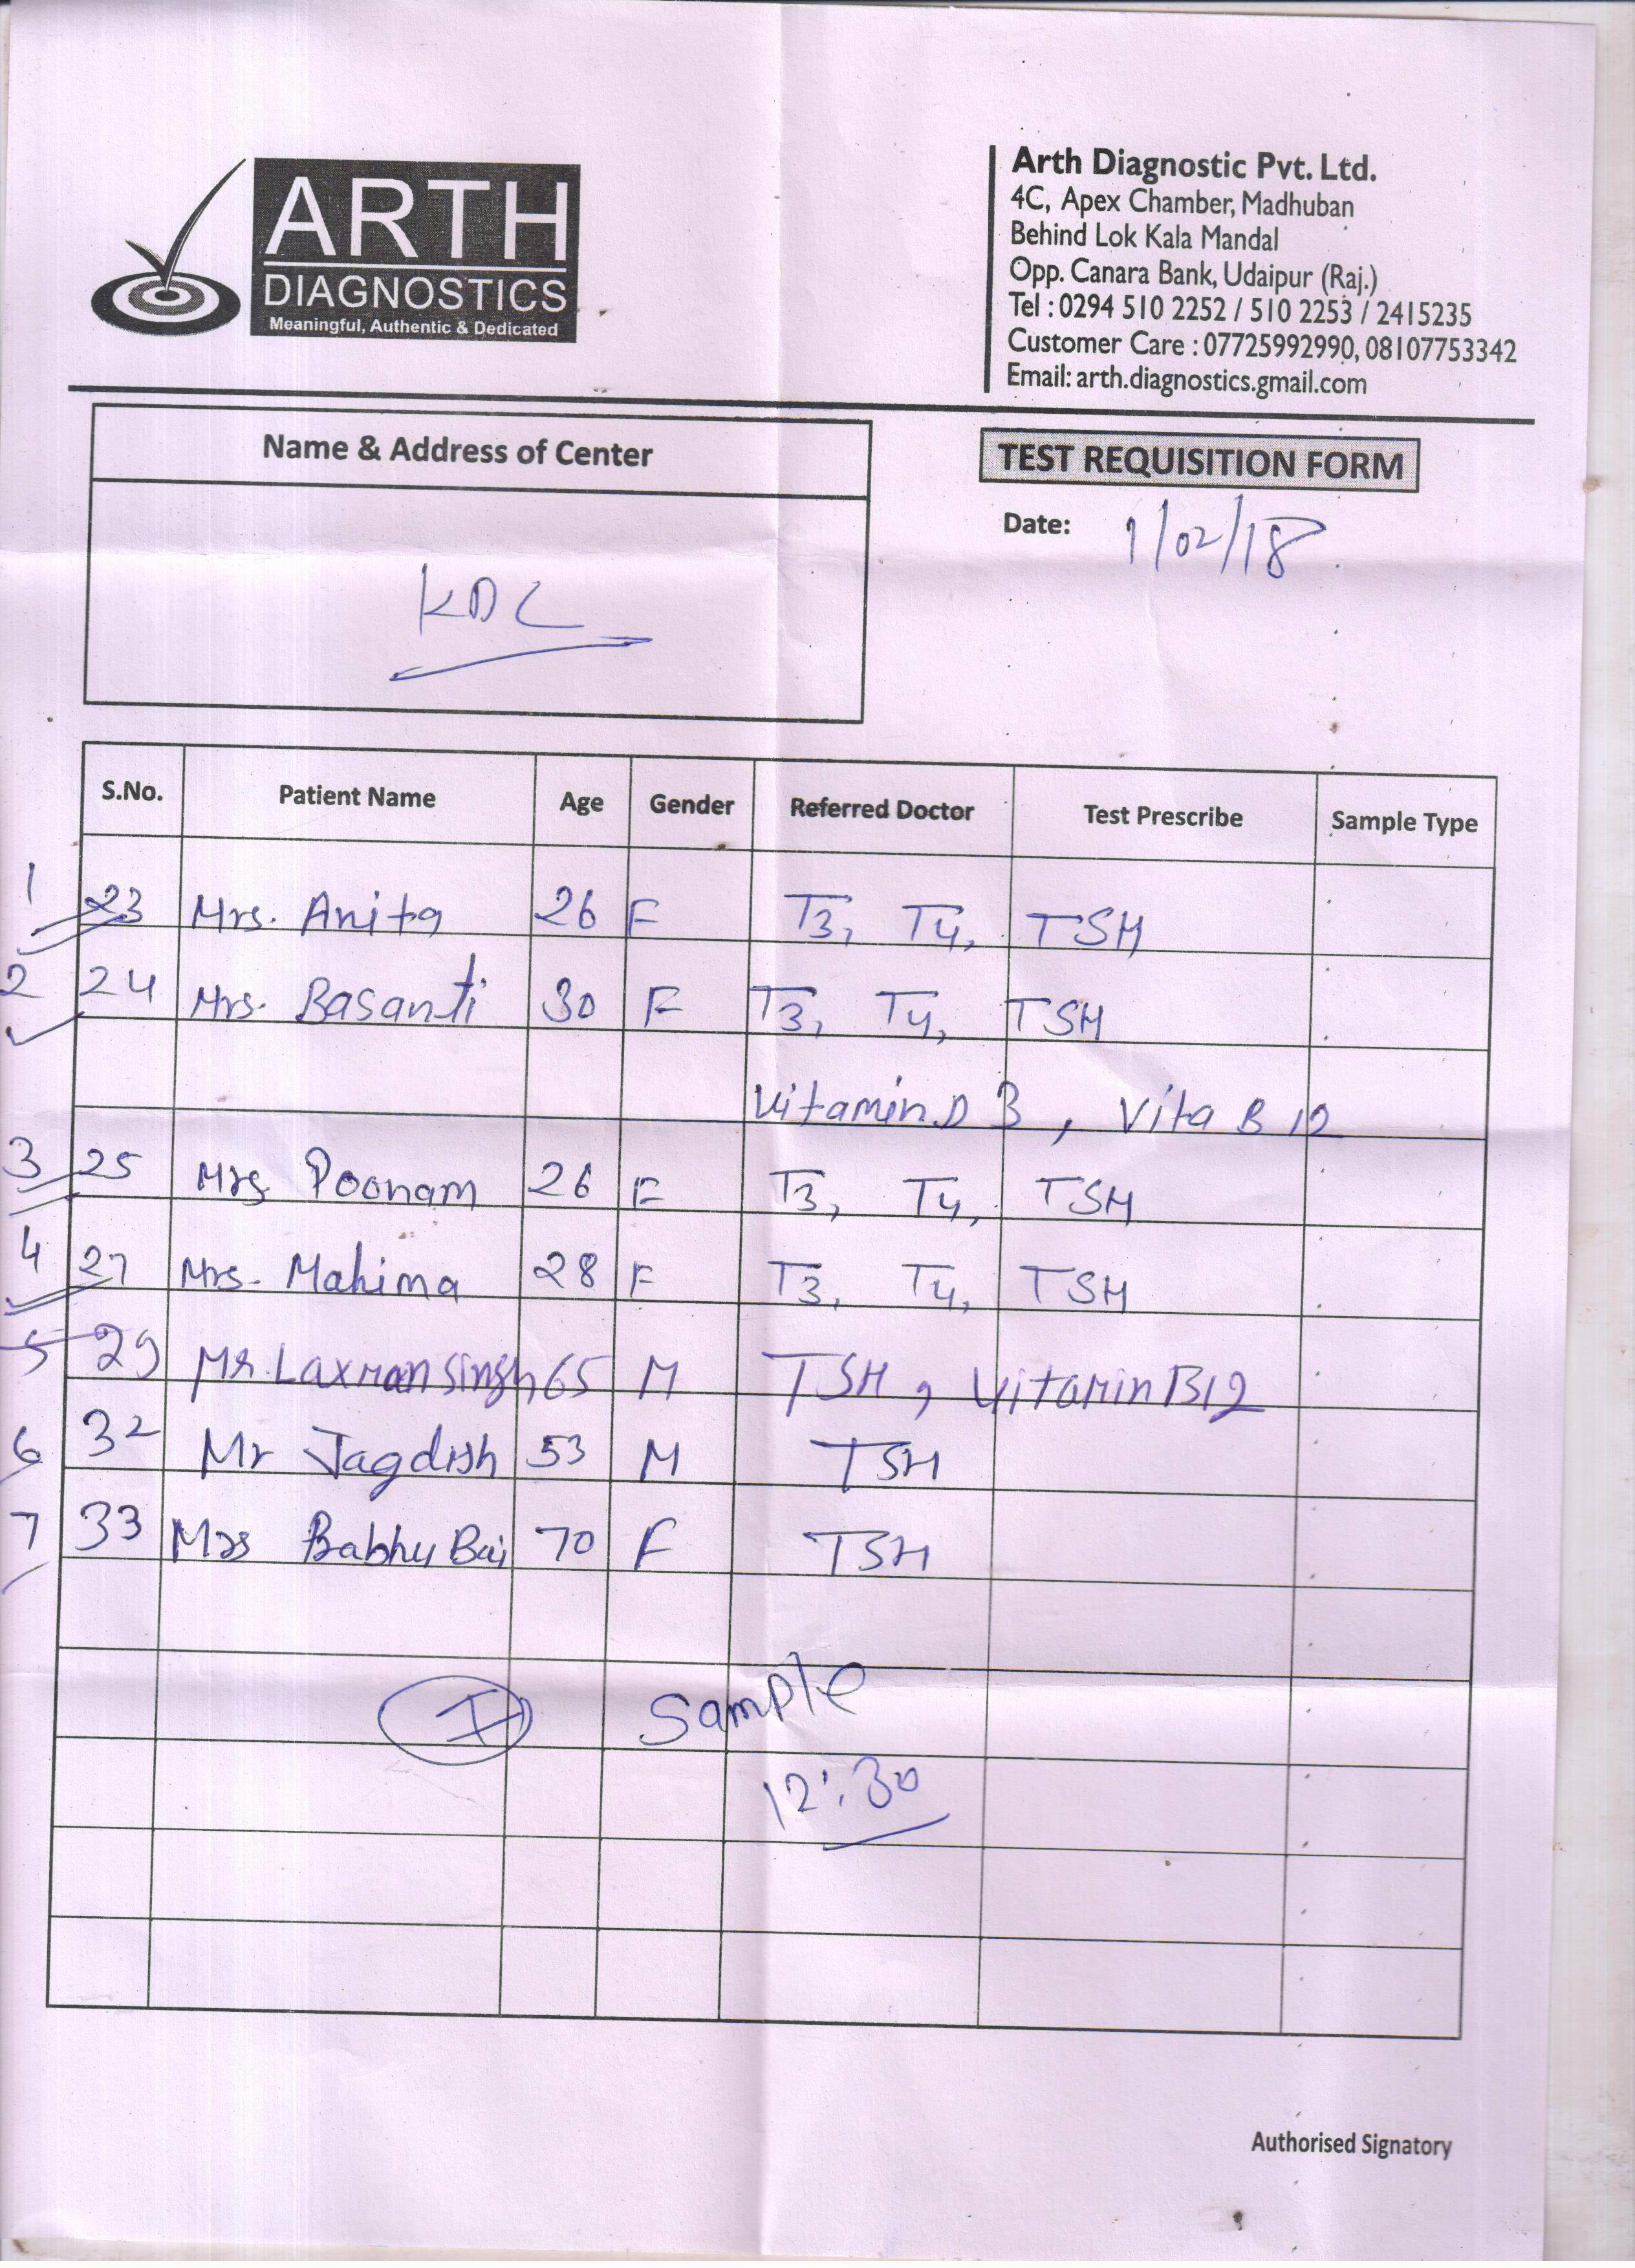 ARTH
DIAGNOSTICS
Meaningful, Authentic & Dedicated
Arth Diagnostic Pvt. Ltd.
4C, Apex Chamber, Madhuban
Behind Lok Kala Mandal
Opp. Canara Bank, Udaipur (Raj.)
Tel : 0294 510 2252 / 510 2253 / 2415235
Customer Care : 07725992990, 08107753342
Email: arth.diagnostics.gmail.com
Name & Address of Center
KDC
TEST REQUISITION FORM
Date: 1/02/18
S.No. Patient Name Age Gender Referred Doctor Test Prescribe Sample Type
1 23 Mrs. Anita 26 F T3, T4, TSH
2 24 Mrs. Basanti 30 F T3, T4, TSH
Vitamin D 3, Vita B 12
3 25 Mrs Poonam 26 F T3, T4, TSH
4 27 Mrs. Mahima 28 F T3, T4, TSH
5 29 Mr. Laxman Singh 65 M TSH, Vitamin B12
6 32 Mr Jagdish 53 M TSH
7 33 Mrs Babhu Bai 70 F TSH
Sample
12:30
Authorised Signatory